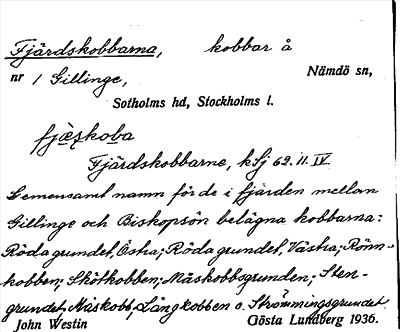 Fjärdskobbarna, kobbar å
nr 1 Gillinge, Nämdö sn,
Sotholms hd, Stockholms l.
fjæskoba
Fjärdskobbarne, kSj 69. II. IV.
Gemensamt namn för de i fjärden mellan
Gillinge och Biskopsön belägna kobbarna:
Röda grundet, Östra; Röda grundet, Västra; Rönn-
kobben; Skötkobben; Måskobbsgrunden; Sten-
grundet, Måskobb, Långkobben o. Strömmingsgrundet
John Westin Gösta Lundberg 1936.